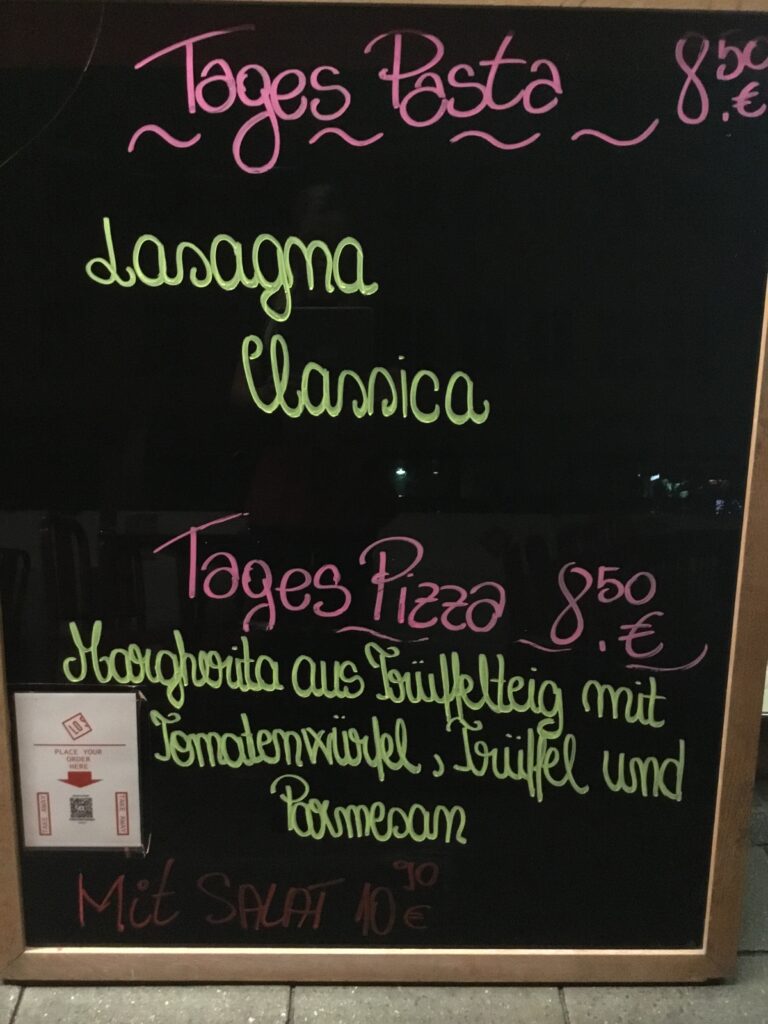 Tages Pasta 8.50 €
Lasagna
Classica
Tages Pizza 8.50 €
Margherita aus Trüffelteig mit
Tomatenwürfel, Trüffel und
Parmesan
PLACE YOUR
ORDER
HERE
TAKE AWAY
Mit SALAT 10 90 €